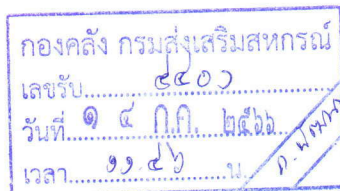 กองคลัง กรมส่งเสริมสหกรณ์
เลขรับ.....๔๔๐๖.....
วันที่ ๑ ๔ ก.ค. ๒๕๖๖
เวลา.....๑๑.๔๖.....น.